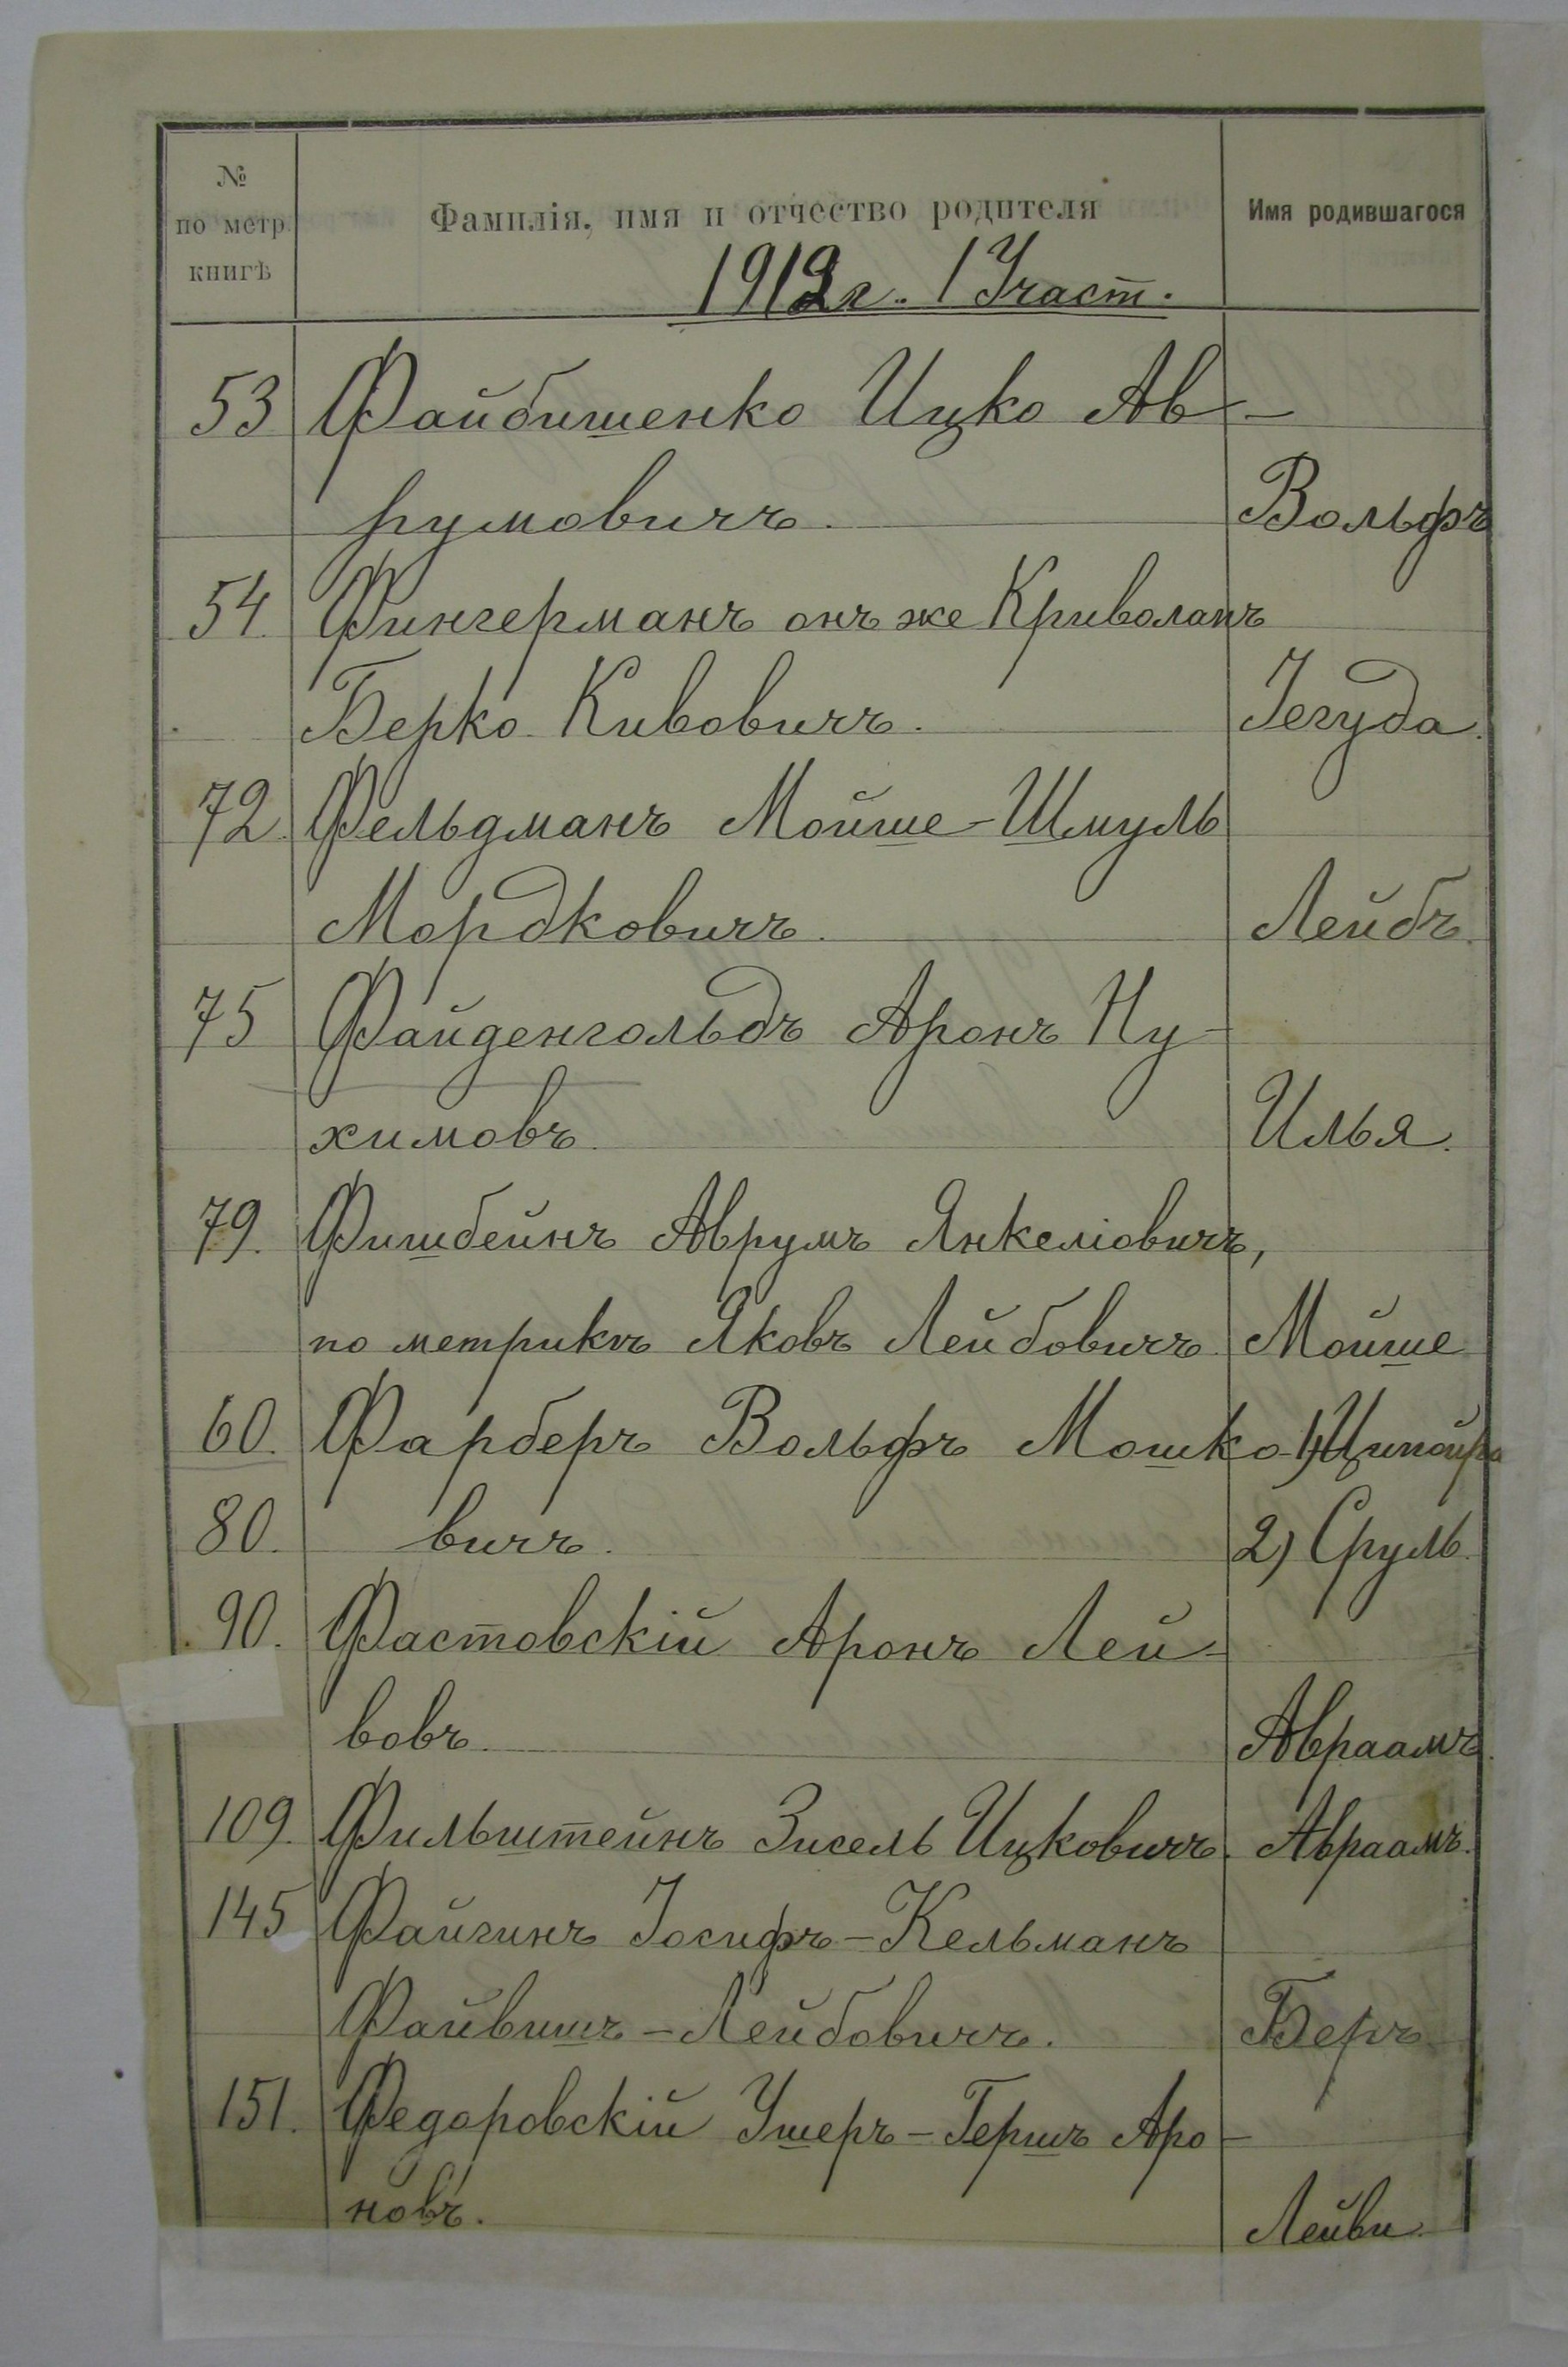 № по метр. книгѣ
Фамилія, имя и отчество родителя
Имя родившагося
1912 г. 1 Участ.
53 Файбишенко Ицко Ав-
румовичъ. Вольфъ
54. Фингерманъ онъ же Криволапъ
Берко Кивовичъ. Іегуда.
72. Фельдманъ Мойше-Шмуль
Мордковичъ. Лейбъ.
75 Файденгольдъ Аронъ Ну-
химовъ. Илья.
79. Фишбейнъ Аврумъ Янкеліовичъ,
по метрикѣ Яковъ Лейбовичъ. Мойше
60. Фарберъ Вольфъ Мошко- 1) Ципойра
80. вичъ. 2) Сруль.
90. Фастовскій Аронъ Лей-
вовъ. Авраамъ.
109. Фильштейнъ Зисель Ицковичъ. Авраамъ.
145 Файгинъ Іосифъ-Кельманъ
Файвишъ-Лейбовичъ. Беръ
151. Федоровскій Ушеръ-Гершъ Аро-
новъ. Лейви.